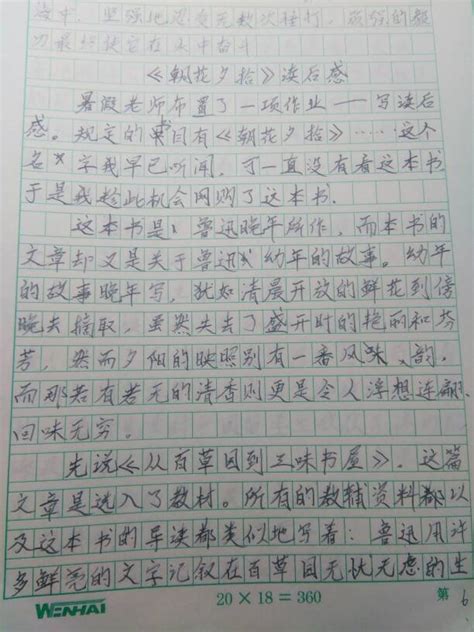 海中，坚强地忍受无数次捶打，顽强的毅
力最终使它在
《朝花夕拾》读后感
暑假老师布置了一项作业——写读后
感。规定的书目有《朝花夕拾》……这个
名字我早已听闻，可一直没有看这本书
于是我趁此机会网购了这本书.
这本书是鲁迅晚年所作，而本书的
文章却又是关于鲁迅幼年的故事。幼年
的故事晚年写，犹如清晨开放的鲜花到傍
晚去摘取，虽然失去了盛开时的艳丽和芬
芳，然而夕阳的映照别有一番风味、韵.
而那若有若无的清香则更是令人浮想连翩、
回味无穷。
先说《从百草园到三味书屋》.这篇
文章是选入了教材。所有的教辅资料都以
及这本书的导读都类似地写着：鲁迅用许
多鲜亮的文字记叙在百草园无忧无虑的生
WENHAI 20×18=360 第 6